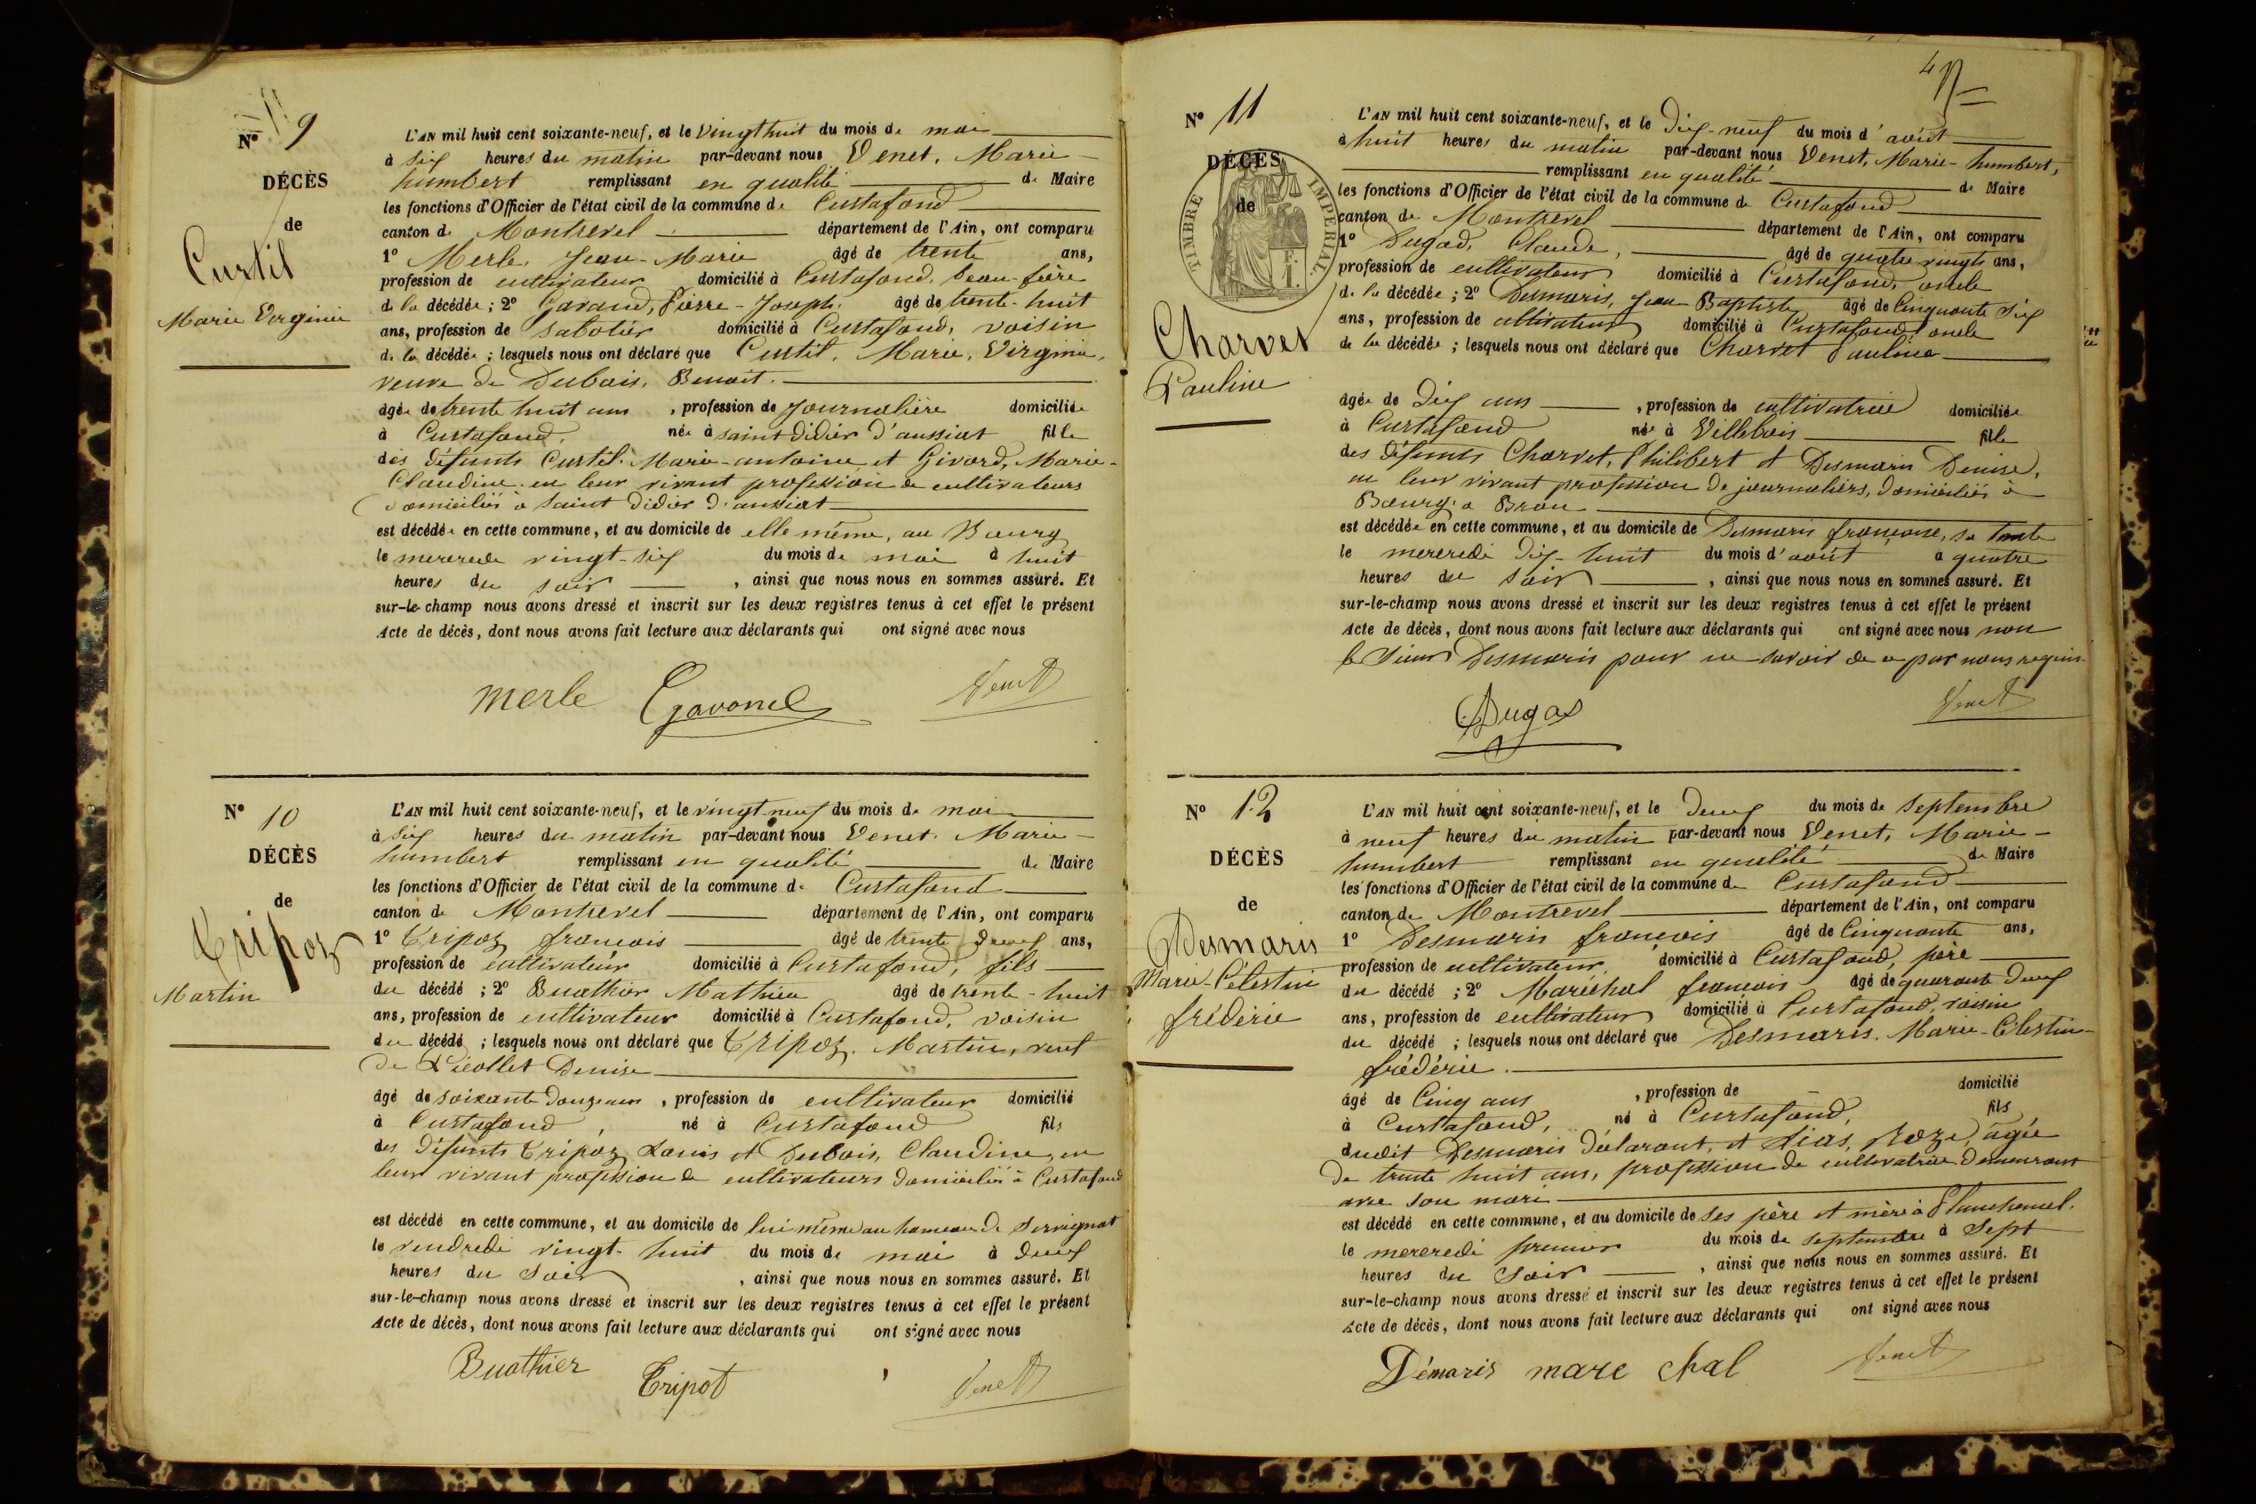 Nº 9
DÉCÈS
de
Curtil
Marie Virginie
L'AN mil huit cent soixante-neuf, et le vingt huit du mois de mai
à six heures du matin par-devant nous Venet, Marie-
humbert remplissant en qualité de Maire
les fonctions d'Officier de l'état civil de la commune de Curtafond
canton de Montrevel département de l'Ain, ont comparu
1º Merle, Jean-Marie âgé de trente ans,
profession de cultivateur domicilié à Curtafond, beau-frère
de la décédée ; 2º Gavand, Pierre-Joseph, âgé de trente-huit
ans, profession de sabotier domicilié à Curtafond, voisin
de la décédée ; lesquels nous ont déclaré que Curtil, Marie, Virginie,
veuve de Dubois, Benoit.
âgée de trente huit ans , profession de journalière domiciliée
à Curtafond, née à saint didier d'aussiat fille
des défunts Curtil Marie-antoine et Givord, Marie-
Claudine en leur vivant profession de cultivateurs
domiciliés à saint didier d'aussiat
est décédée en cette commune, et au domicile de elle même, au Bourg
le mercredi vingt-six du mois de mai à huit
heures du soir , ainsi que nous nous en sommes assuré. Et
sur-le-champ nous avons dressé et inscrit sur les deux registres tenus à cet effet le présent
Acte de décès, dont nous avons fait lecture aux déclarants qui ont signé avec nous
merle Gavand Venet
Nº 10
DÉCÈS
de
Tripoz
Martin
L'AN mil huit cent soixante-neuf, et le vingt neuf du mois de mai
à six heures du matin par-devant nous Venet, Marie-
humbert remplissant en qualité de Maire
les fonctions d'Officier de l'état civil de la commune de Curtafond
canton de Montrevel département de l'Ain, ont comparu
1º Tripoz francois âgé de trente deux ans,
profession de cultivateur domicilié à Curtafond, fils
du décédé ; 2º Buathier Mathieu âgé de trente-huit
ans, profession de cultivateur domicilié à Curtafond, voisin
du décédé ; lesquels nous ont déclaré que Tripoz, Martin, veuf
de Picollet Denise
âgé de soixante douze ans , profession de cultivateur domicilié
à Curtafond , né à Curtafond fils
des défunts Tripoz Louis et Dubois, Claudine, en
leur vivant profession de cultivateurs domiciliés à Curtafond
est décédé en cette commune, et au domicile de lui même au hameau de Servignat
le vendredi vingt-huit du mois de mai à deux
heures du soir , ainsi que nous nous en sommes assuré. Et
sur-le-champ nous avons dressé et inscrit sur les deux registres tenus à cet effet le présent
Acte de décès, dont nous avons fait lecture aux déclarants qui ont signé avec nous
Buathier Tripot Venet
4
Nº 11
DÉCÈS
de
TIMBRE IMPERIAL
Charvet
Pauline
L'AN mil huit cent soixante-neuf, et le dix-neuf du mois d'août
à huit heures du matin par-devant nous Venet, Marie-humbert,
remplissant en qualité de Maire
les fonctions d'Officier de l'état civil de la commune de Curtafond
canton de Montrevel département de l'Ain, ont comparu
1º Dugad, Claude, âgé de quatre vingts ans,
profession de cultivateur domicilié à Curtafond, oncle
de la décédée ; 2º Desmaris, Jean Baptiste âgé de Cinquante six
ans, profession de cultivateur domicilié à Curtafond oncle
de la décédée ; lesquels nous ont déclaré que Charvet Pauline
âgée de dix ans , profession de cultivatrice domiciliée
à Curtafond née à Villebois fille
des défunts Charvet, Philibert et Desmaris Denise,
en leur vivant profession de journaliers, domiciliés à
Bourg à Brou
est décédée en cette commune, et au domicile de Desmaris françoise, sa tante
le mercredi dix-huit du mois d'août à quatre
heures du soir , ainsi que nous nous en sommes assuré. Et
sur-le-champ nous avons dressé et inscrit sur les deux registres tenus à cet effet le présent
Acte de décès, dont nous avons fait lecture aux déclarants qui ont signé avec nous non
le sieur Desmaris pour ne savoir de ce par nous requis
Dugas Venet
Nº 12
DÉCÈS
de
Desmaris
Marie-Célestin
fréderic
L'AN mil huit cent soixante-neuf, et le deux du mois de septembre
à neuf heures du matin par-devant nous Venet, Marie-
humbert remplissant en qualité de Maire
les fonctions d'Officier de l'état civil de la commune de Curtafond
canton de Montrevel département de l'Ain, ont comparu
1º Desmaris francois âgé de Cinquante ans,
profession de cultivateur domicilié à Curtafond, père
du décédé ; 2º Maréchal francois âgé de quarante deux
ans, profession de cultivateur domicilié à Curtafond, voisin
du décédé ; lesquels nous ont déclaré que Desmaris, Marie-Célestin-
frédéric.
âgé de Cinq ans , profession de domicilié
à Curtafond, né à Curtafond, fils
dudit Desmaris déclarant, et Roze, âgée
de trente huit ans, profession de cultivatrice demeurant
avec son mari
est décédé en cette commune, et au domicile de ses père et mère à
le mercredi premier du mois de septembre à sept
heures du soir , ainsi que nous nous en sommes assuré. Et
sur-le-champ nous avons dressé et inscrit sur les deux registres tenus à cet effet le présent
Acte de décès, dont nous avons fait lecture aux déclarants qui ont signé avec nous
Démaris mare chal Venet